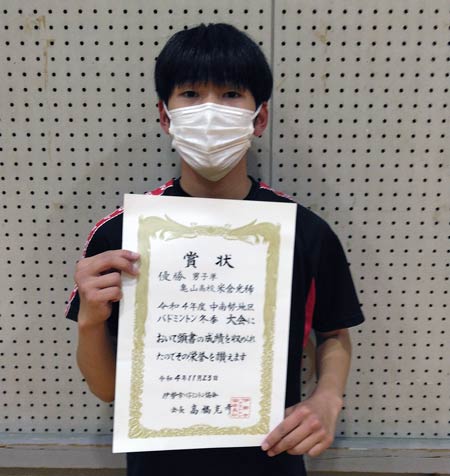 賞状
優勝 男子単
亀山高校 米倉光稀
令和4年度 中南勢地区
バドミントン冬季 大会に
おいて頭書の成績を収められ
たのでその栄誉を讃えます
令和4年11月23日
伊勢市バドミントン協会
会長 高橋克